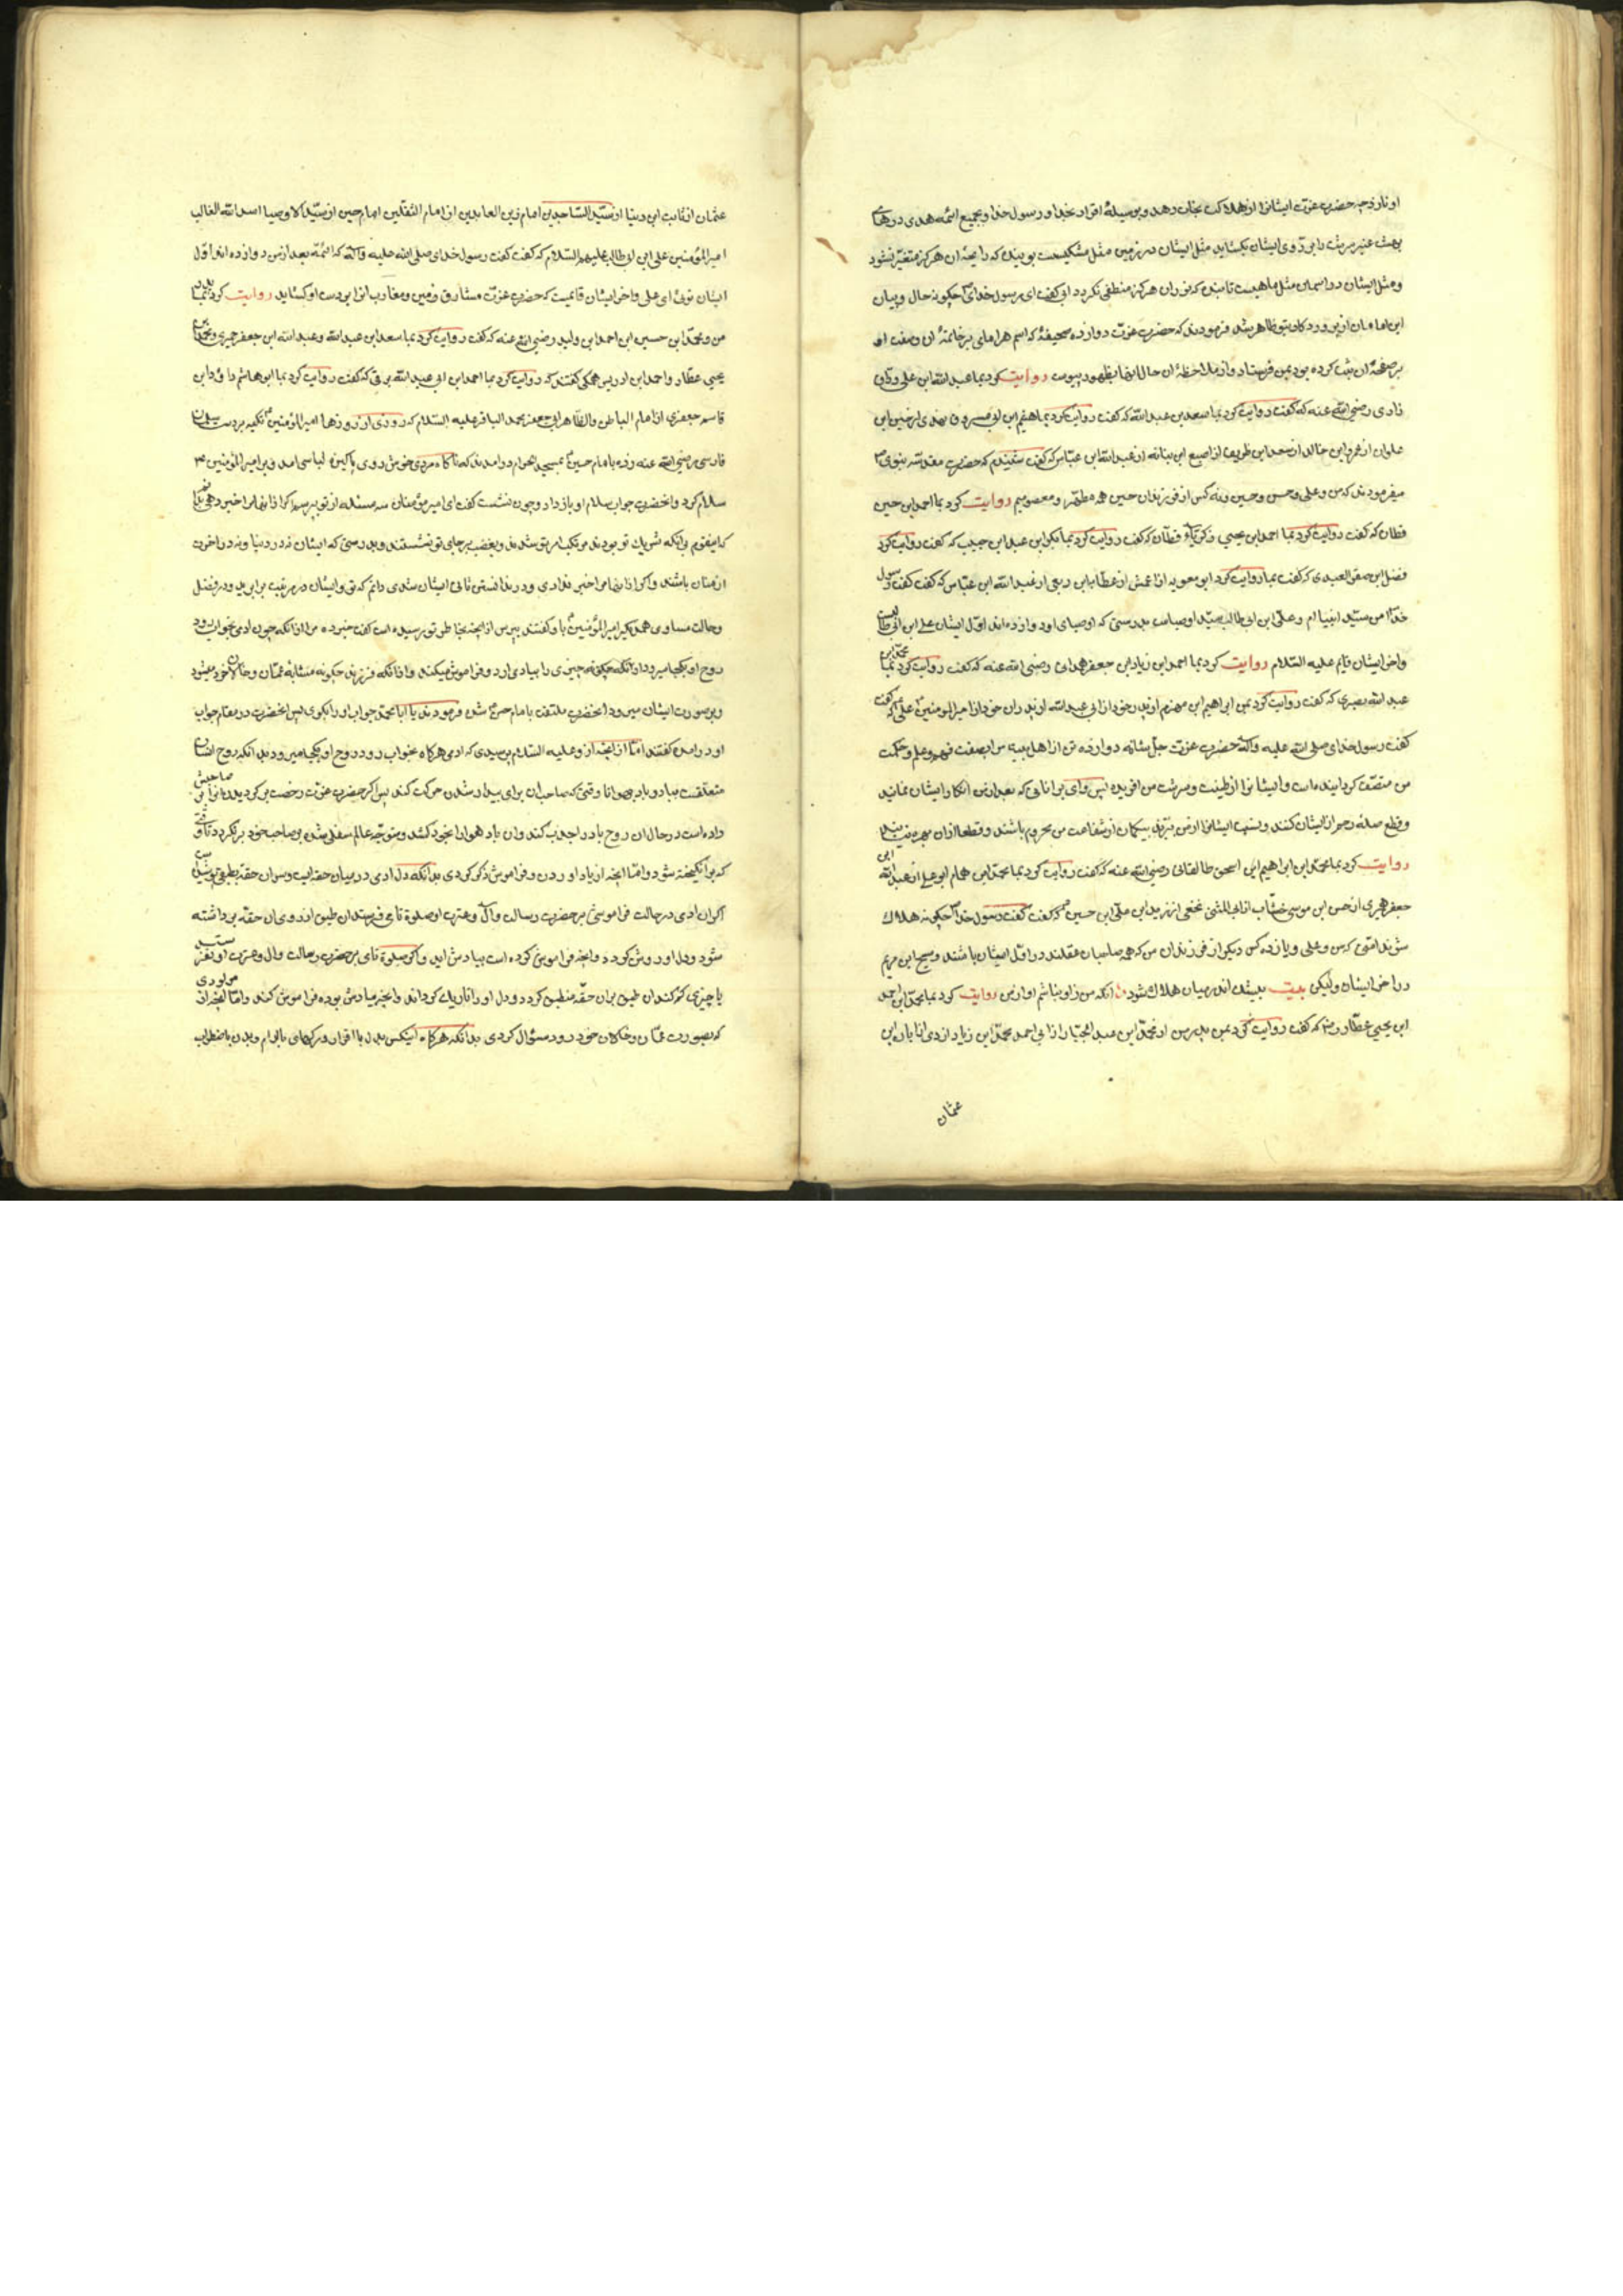 او نار دوجه حضرت عزت ایشانرا از هلاکت نجات دهد و بوسیلهٔ اقرار بخدا و رسول خدا و بجمیع ائمه هدی درهای
بهشت عنبر سرشت را بر روی ایشان بکشاید مثل ایشان در زمین مثل مشکیست بوینده که رایحهٔ ان هرکز متغیر نشود
و مثل ایشان در اسمان مثل ماهیست تابنده که نور ان هرکز منطفی نکردد ابی کفت ای رسول خدا چکونه حال و بیان
این امامان از پروردکار بتو ظاهر شد فرمودند که حضرت عزت دوازده صحیفهٔ که اسم هر امامی بر خاتمهٔ ان وصفت او
بر صفحهٔ ان ثبت کرده بود بمن فرستاد و از ملاحظهٔ ان حال انها بظهور پیوست روایت کرد بما عبد الله ابن علی وراق
رازی رضی الله عنه که کفت روایت کرد بما سعد بن عبد الله که کفت روایت کرد بما هیثم ابن ابی مسروق نهدی از حسین ابن
علوان از عمرو ابن خالد از سعد ابن طریف از اصبغ ابن نباته از عبد الله ابن عباس که کفت شنیدم که حضرت مقدسه نبوی ص
میفرمودند که من و علی و حسن و حسین و نه کس از فرزندان حسین همه مطهر و معصومیم روایت کرد بما احمد ابن حسن
قطان که کفت روایت کرد بما احمد ابن یحیی زکریاء قطان که کفت روایت کرد بما بکر ابن عبد الله ابن حبیب که کفت روایت کرد
فضل ابن صقر العبدی که کفت بما روایت کرد ابو معویه از اعمش از عطایا ابن ربعی از عبد الله ابن عباس که کفت کفت رسول
خدا من سید انبیاام و علی ابن ابی طالب سید اوصیاست بدرستی که اوصیای او دوازده اند اول ایشان علی ابن ابی طالبست
و اخر ایشان قایم علیه السلام روایت کرد بما احمد ابن زیاد ابن جعفر همدانی رضی الله عنه که کفت روایت کرد بما محمد ابن
عبد الله بصری که کفت روایت کرد بمن ابراهیم ابن مهزم از پدر خود از ابی عبد الله از پدران خود از امیر المومنین علی که کفت
کفت رسول خدای صلی الله علیه و اله حضرت عزت جل شانه دوازده تن از اهل بیت مرا بصفت فهم و علم و حکمت
من متصف کردانیده است و ایشانرا از طینت و سرشت من افریده پس وای بر انانی که بعد از من انکار ایشان نمایند
و قطع صلهٔ رحم از ایشان کنند و نسبت ایشانرا از من ببرند بیکمان از شفاعت من محروم باشند و قطعا از ان بهره نبینند
روایت کرد بما محمد ابن ابراهیم ابن اسحق طالقانی رضی الله عنه که کفت روایت کرد بما محمد ابن همام ابو علی از عبد الله ابی
جعفر حمیری از حسن ابن موسی خشاب از ابی المثنی نخعی از زید ابن علی ابن حسین که کفت کفت رسول خدا چکونه هلاک
شوند امتی که من و علی و یازده کس دیکر از فرزندان من که همه صاحبان عقلند در اول ایشان باشند و مسیح ابن مریم
در اخر ایشان ولیکن بیت بیشک اندر میان هلاک شود انکه من زاو نباشم او از من روایت کرد بما محمد ابن احمد
ابن یحیی عطار رض که کفت روایت کرد بمن پدر من از محمد ابن عبد الجبار از ابی احمد محمد ابن زیاد ازدی از ابان ابن
عثمان
عثمان از ثابت ابن دینار از سید الساجدین امام زین العابدین از امام الثقلین امام حسین از سید الاوصیا اسد الله الغالب
امیر المؤمنین علی ابن ابی طالب علیهم السلام که کفت کفت رسول خدای صلی الله علیه و اله که ائمه بعد از من دوازده اند اول
ایشان توئی ای علی و اخر ایشان قایمیست که حضرت عزت مشارق زمین و مغارب انرا بر دست او کشاید روایت کرد بما پدر
من و محمد ابن حسین ابن احمد ابن ولید رضی الله عنه که کفت روایت کرد بما سعد ابن عبد الله و عبد الله ابن جعفر حمیری و محمد ابن
یحیی عطار و احمد ابن ادریس همکی کفتند که روایت کرد بما احمد ابن ابی عبد الله برقی که کفت روایت کرد بما ابو هاشم داود ابن
قاسم جعفری از امام الباطن و الظاهر ابی جعفر محمد الباقر علیه السلام که روزی از روزها امیر المؤمنین تکیه بر دست سلمان
فارسی رضی الله عنه زده با امام حسن بمسجد الحرام درامدند که ناکاه مردی خوش روی پاکیزه لباسی امد و بر امیر المؤمنین
سلام کرد و انحضرت جواب سلام او باز داد و چون نشست کفت ای امیر مؤمنان سه مسئله از تو بپرسم اکر از انها مرا خبر دهی
که این قوم بانکه شریک تو بودند مرتکب امر تو شدند و بغصب بر جای تو نشستند و بدرستی که ایشان نه در دنیا و نه در اخرت
از منان باشند و اکر از انها مرا خبر ندادی و در ندانستن ثانی ایشان شدی دانم که تو و ایشان در مرتبت برابرید و در فضل
و حالت مساوی همدیکر امیر المؤمنین باو کفتند بپرس از انچه بخاطر تو رسیده است کفت خبر ده مرا از انکه چون ادمی بخواب رود
روح او بکجا میرود از انکه چکونه چیزی را بیاد می ارد و فراموش میکند و از انکه فرزند چکونه مشابه عمان و خالان خود میشود
و بر صورت ایشان میرود انحضرت ملتفت بامام حسن شده فرمودند یا ابا محمد جواب او را بکوی پس انحضرت در مقام جواب
او در امده کفتند اما از انچه از و علیه السلام پرسیدی که ادمی هرکاه بخواب رود روح او بکجا میرود بدانکه روح انسان
متعلقست بباد و باد بهوا تا وقتی که صاحب ان برای بیدار شدن حرکت کند پس اکر حضرت عزت رخصت برکردیدن انرا بر صاحبش
داده است در حال ان روح باد را جذب کند و ان باد هوا را بخود کشد و متوجه عالم سفلی شده بر صاحب خود برنکردد تا وقتی
که برانکیخته شود و اما انچه از یاد اوردن و فراموش ذکر کردی بدانکه دل ادمی در میان حقه ایست و سر ان حقه بطبقی پوشیده است
اکر ان ادمی در حالت فراموشی بر حضرت رسالت و ال و عترت او صلوة تامی فرستد ان طبق از روی ان حقه برداشته
شود و دل او روشن کردد و انچه فراموش کرده است بیادش اید و اکر صلوة تامی بر حضرت رسالت و ال و عترت او نفرستد
یا چیزی کم کند ان طبق بران حقه منطبق کردد و دل او را تاریک کرداند و انچه بیادش بوده فراموش کند و اما انچه از مولودی
که بصورت عمان و خالان خود رود سؤال کردی بدانکه هرکاه اینکس بدل با اقران و رکهای با ارام و بدن با اضطراب